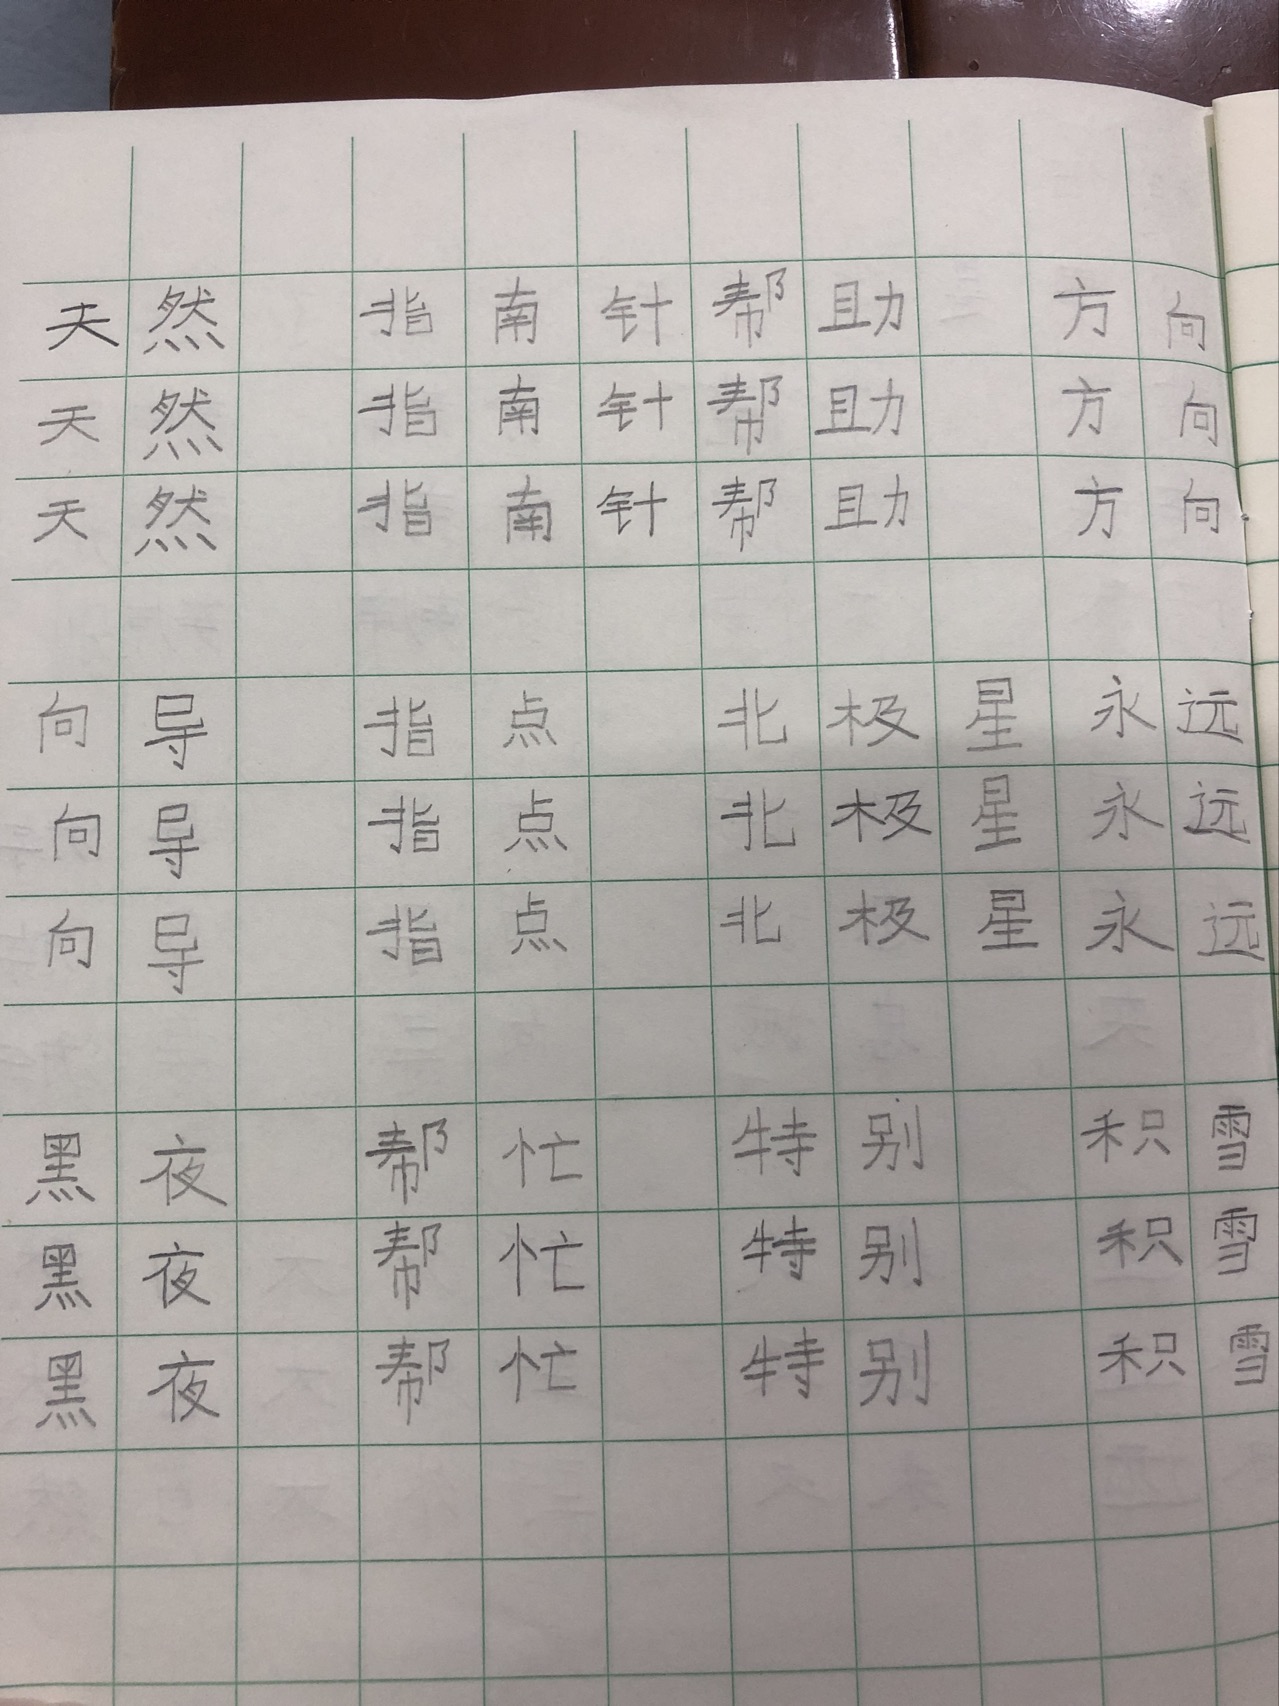 天然 指南针帮助 方向
天然 指南针帮助 方向
天然 指南针帮助 方向
向导 指点 北极星永远
向导 指点 北极星永远
向导 指点 北极星永远
黑夜 帮忙 特别 积雪
黑夜 帮忙 特别 积雪
黑夜 帮忙 特别 积雪